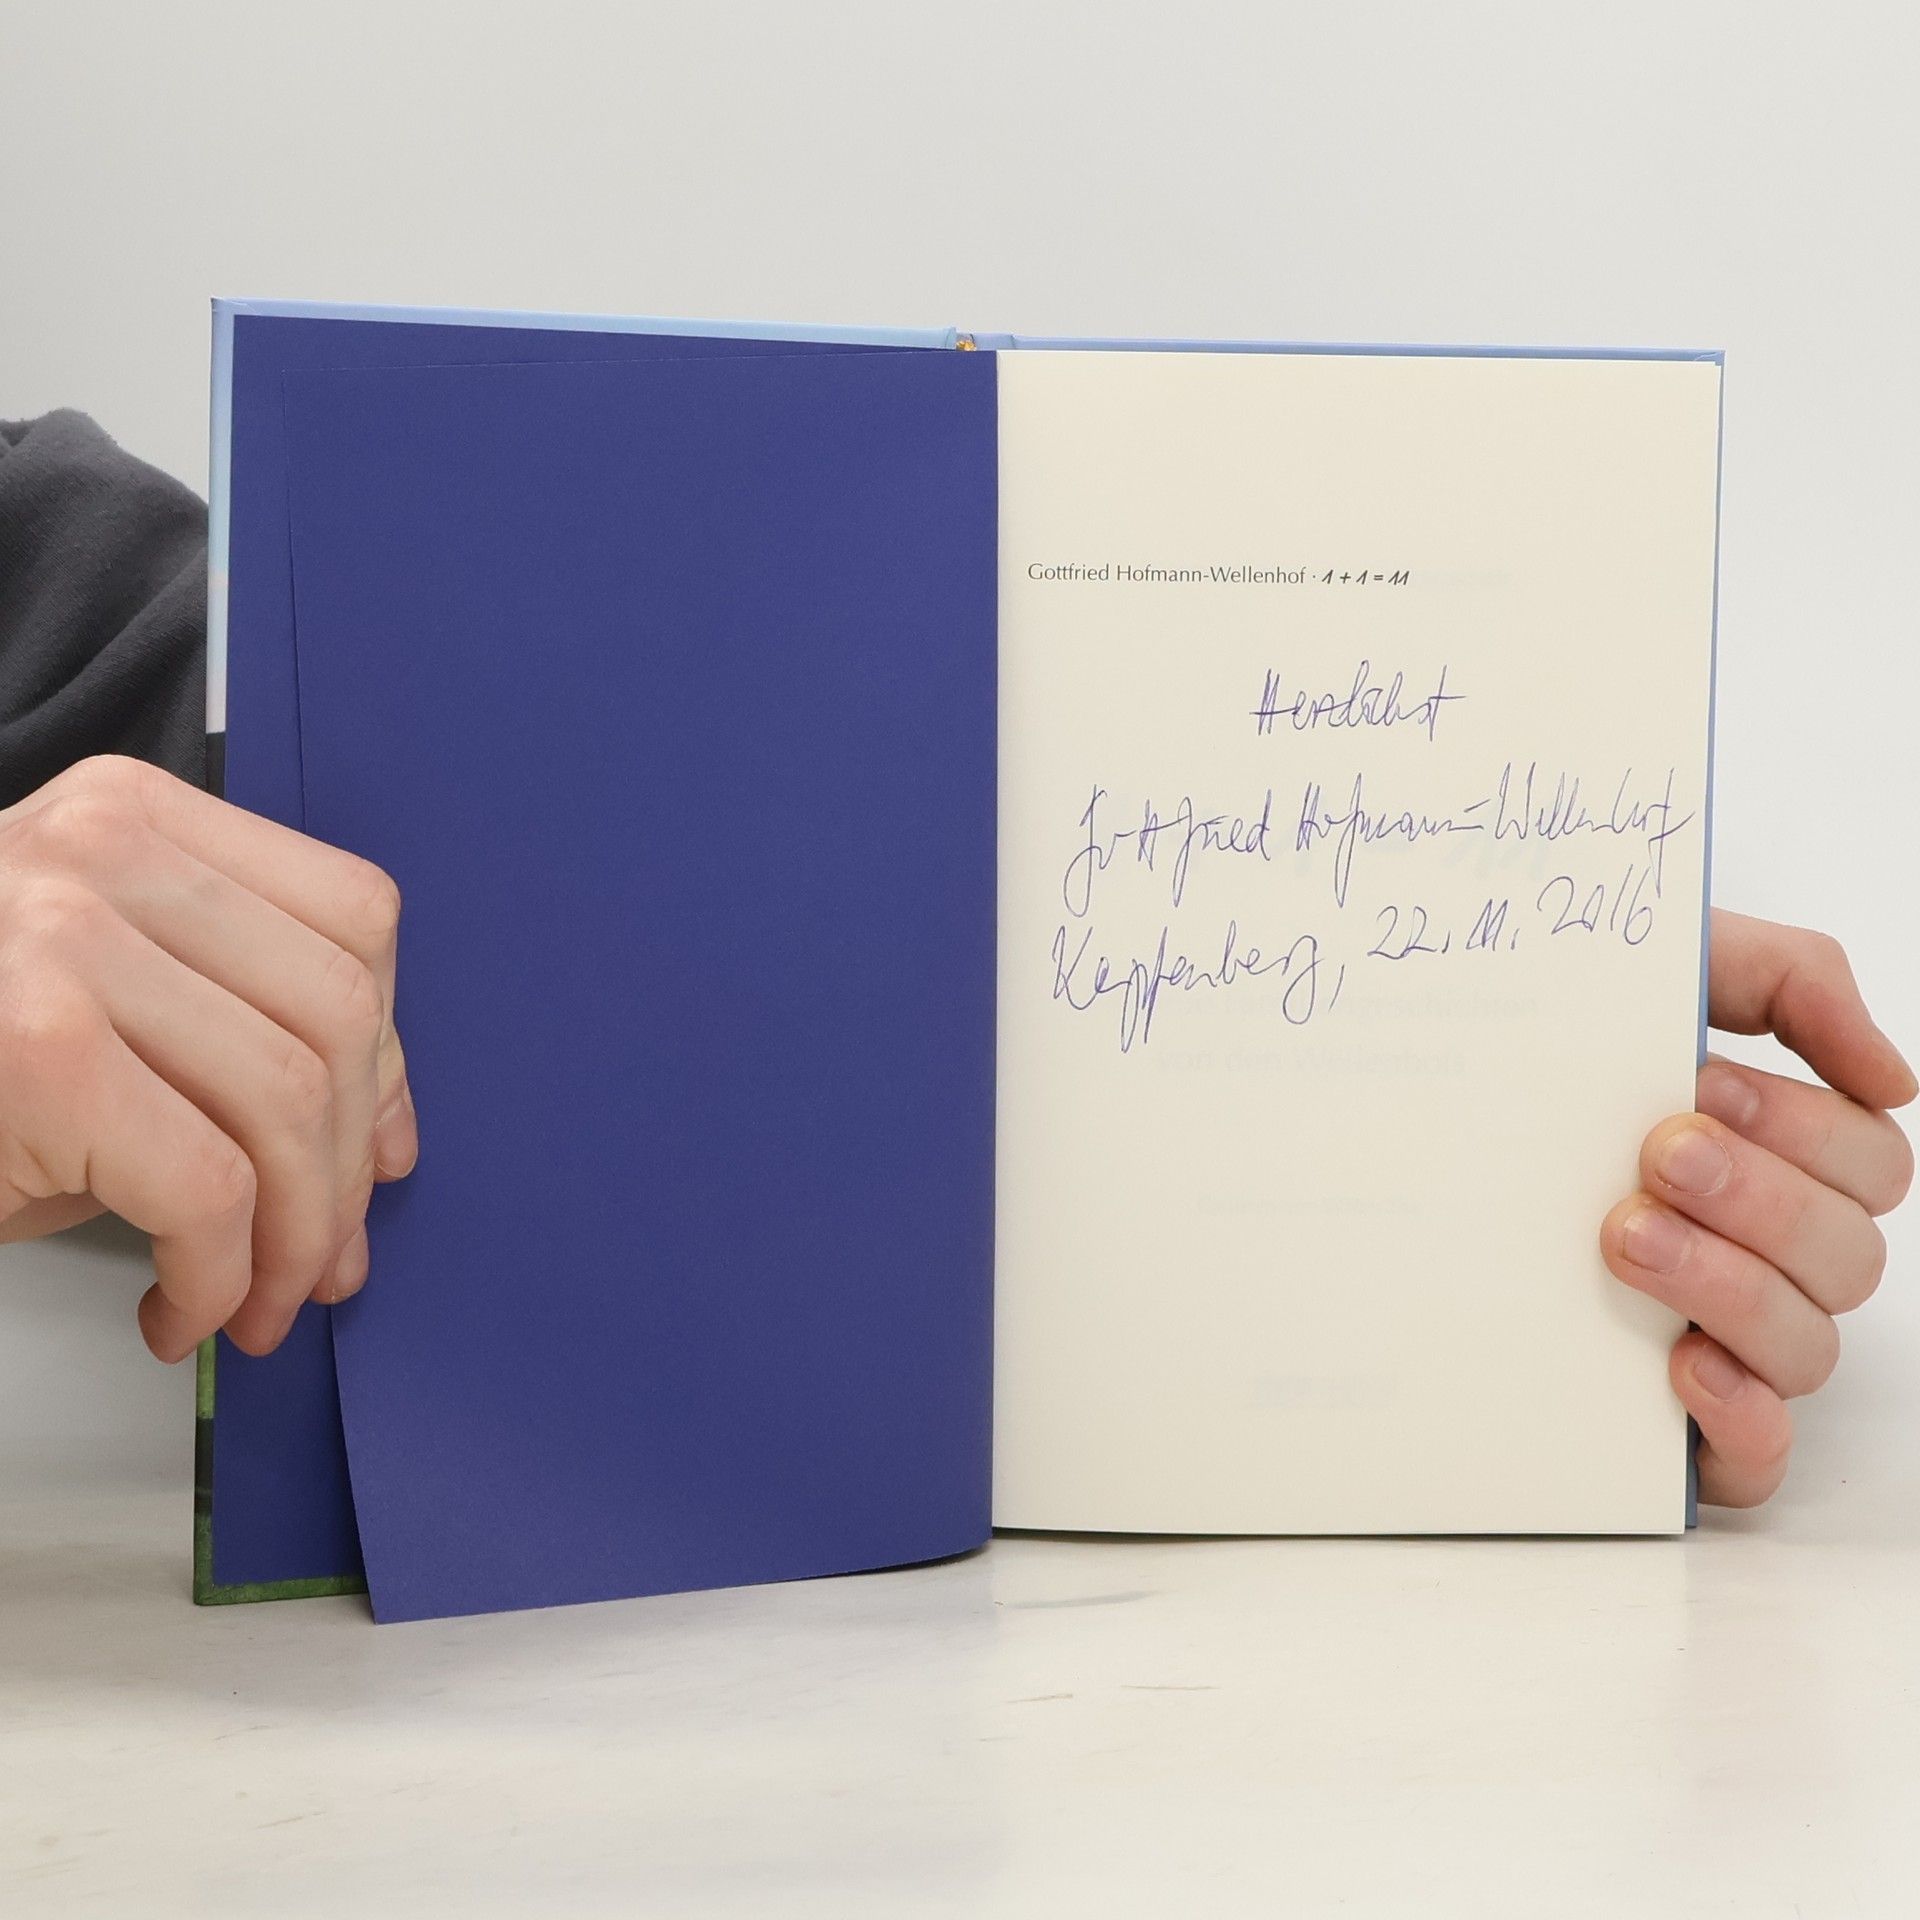 Gottfried Hofmann-Wellenhof · 1 + 1 = 11
Herzlichst
Gottfried Hofmann-Wellenhof
Kapfenberg, 22. 11. 2016
von den Wellenhofs